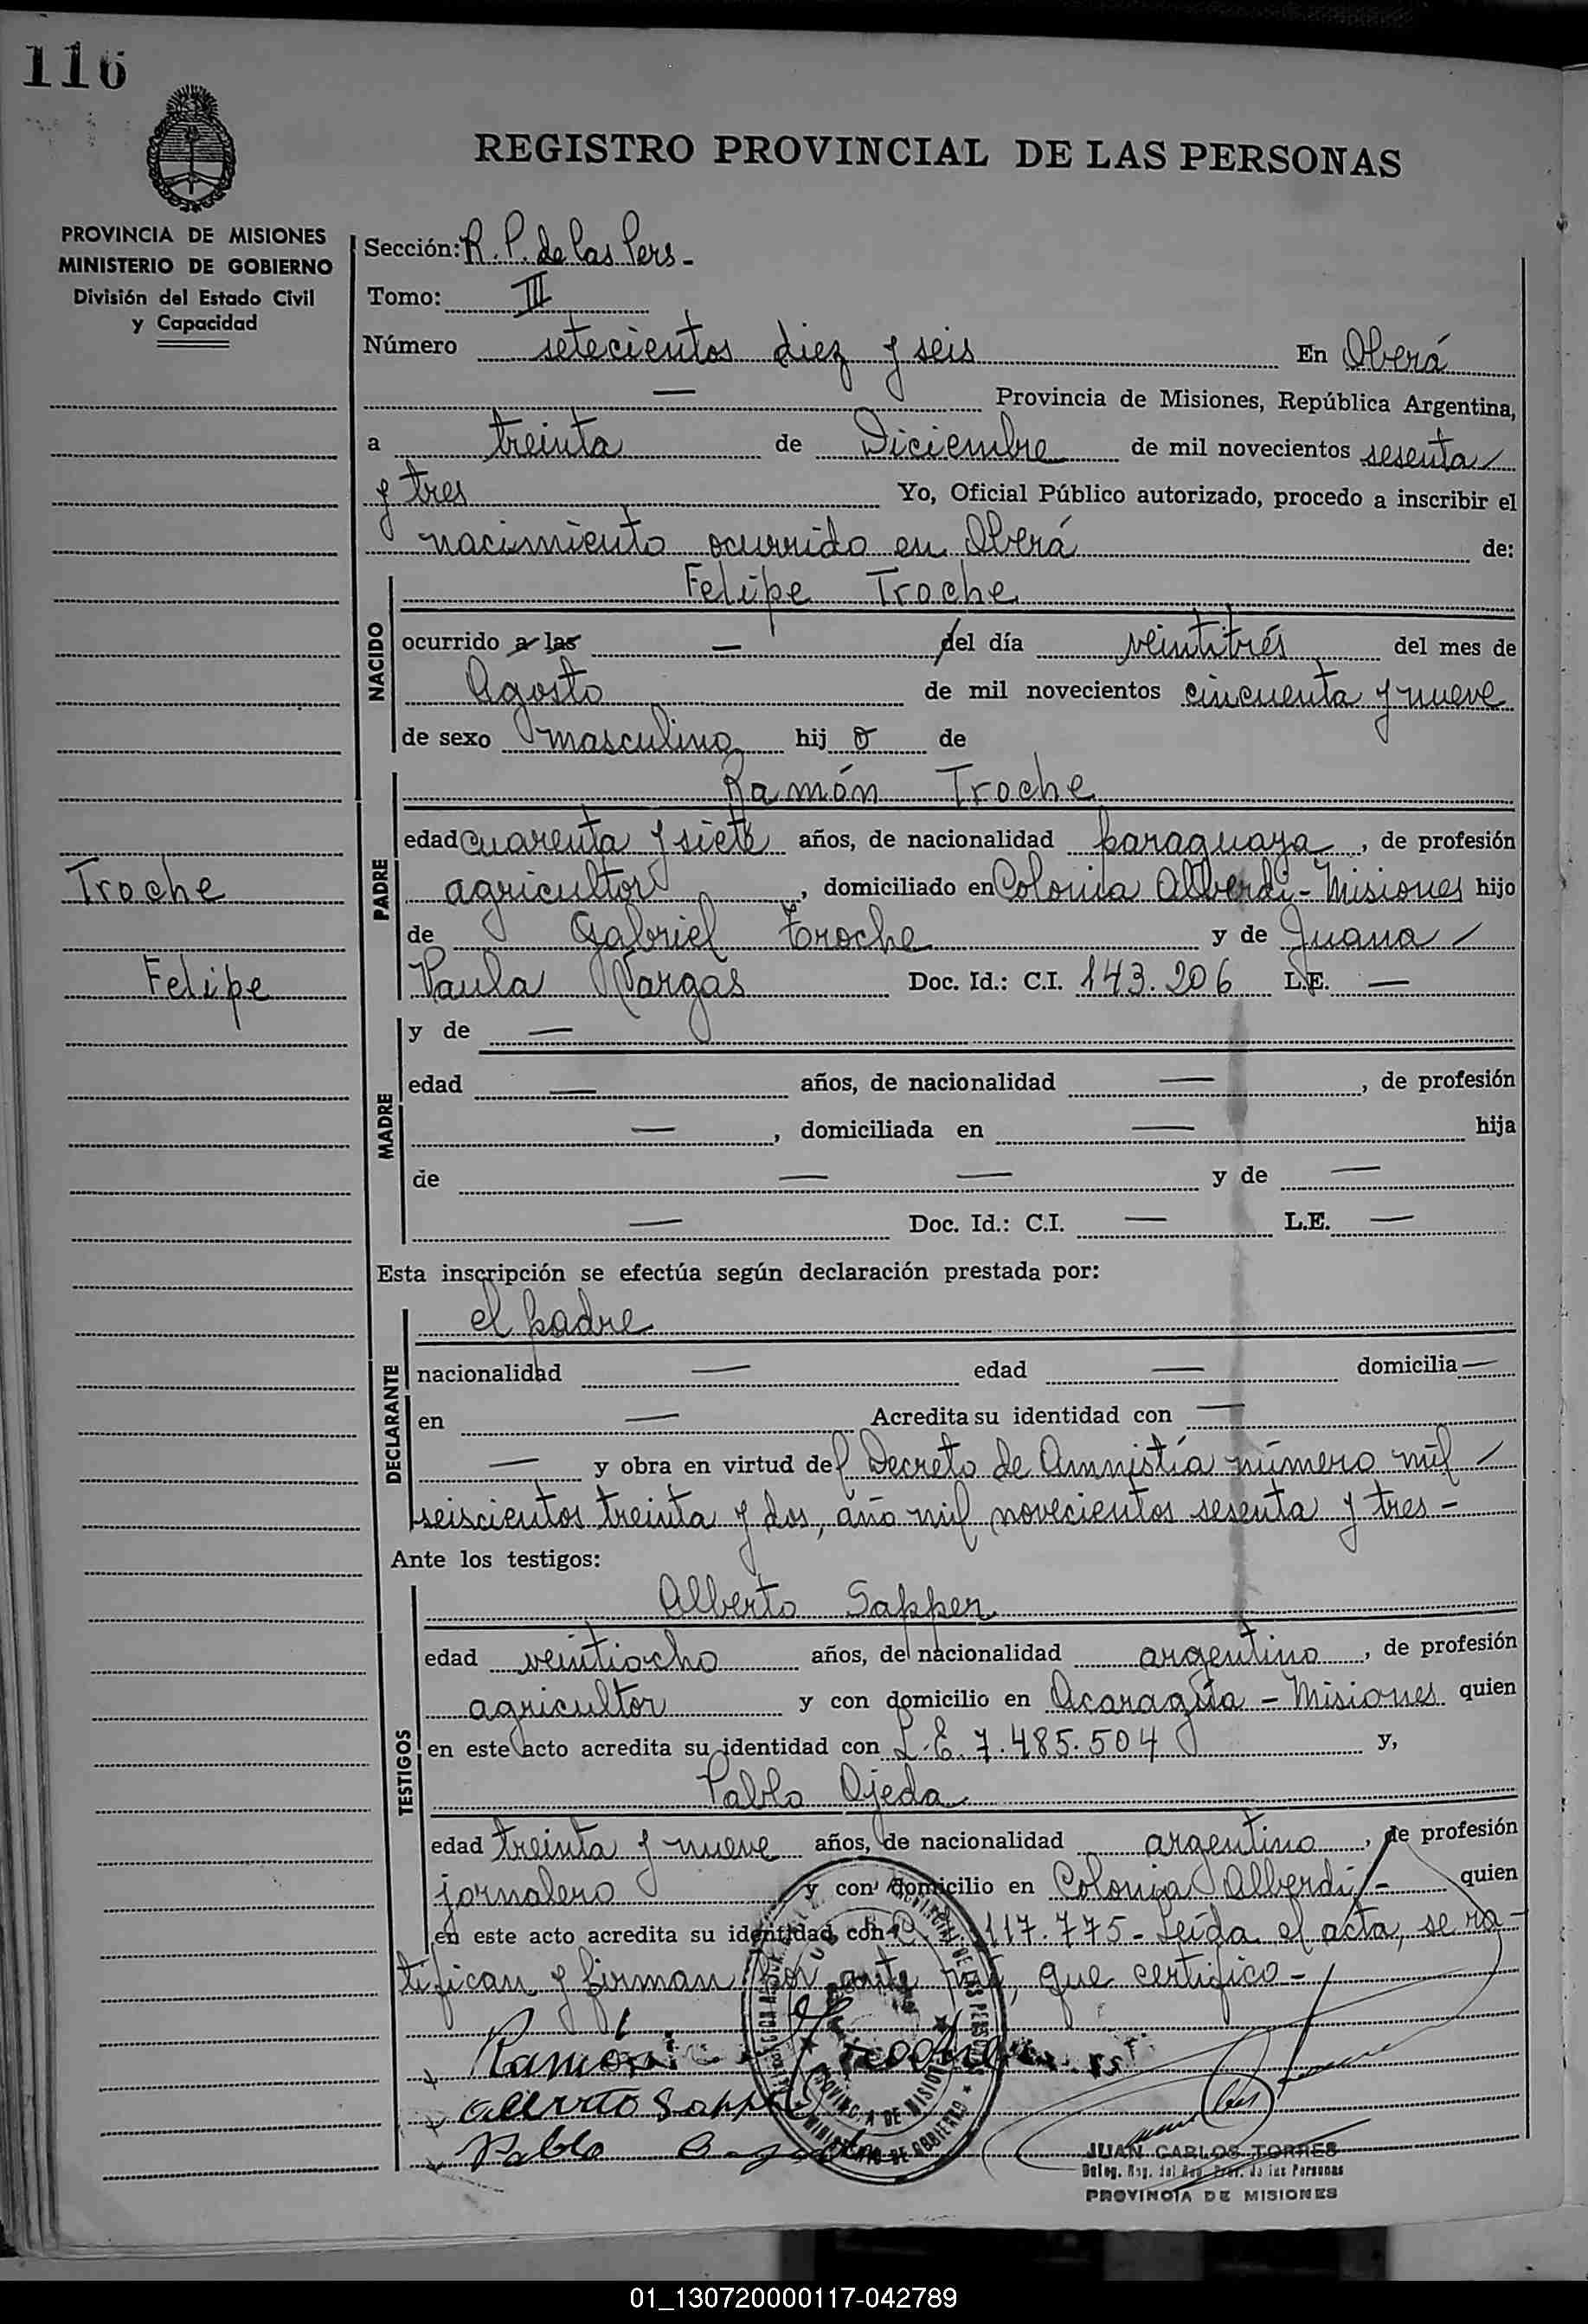 116
REGISTRO PROVINCIAL DE LAS PERSONAS
PROVINCIA DE MISIONES
MINISTERIO DE GOBIERNO
División del Estado Civil
y Capacidad
Sección: R. P. de las Pers -
Tomo: III
Número setecientos diez y seis En Oberá
— Provincia de Misiones, República Argentina,
a treinta de Diciembre de mil novecientos sesenta
y tres Yo, Oficial Público autorizado, procedo a inscribir el
nacimiento ocurrido en Oberá de:
NACIDO
Felipe Troche
ocurrido a las — del día veintitrés del mes de
Agosto de mil novecientos cincuenta y nueve
de sexo masculino hij o de
PADRE
Ramón Troche
edad cuarenta y siete años, de nacionalidad paraguaya, de profesión
agricultor, domiciliado en Colonia Alberdi - Misiones hijo
de Gabriel Troche y de Juana
Paula Vargas Doc. Id.: C.I. 143.206 L.E. —
Troche
Felipe
MADRE
y de —
edad — años, de nacionalidad —, de profesión
—, domiciliada en — hija
de — — y de —
— Doc. Id.: C.I. — L.E. —
Esta inscripción se efectúa según declaración prestada por:
DECLARANTE
el padre
nacionalidad — edad — domicilia —
en — Acredita su identidad con —
— y obra en virtud del Decreto de Amnistía número mil
seiscientos treinta y dos, año mil novecientos sesenta y tres -
Ante los testigos:
TESTIGOS
Alberto Sapper
edad veintiocho años, de nacionalidad argentino, de profesión
agricultor y con domicilio en Acaragüa - Misiones quien
en este acto acredita su identidad con L. E. 7.485.504 y,
Pablo Ojeda
edad treinta y nueve años, de nacionalidad argentino, de profesión
jornalero y con domicilio en Colonia Alberdi - quien
en este acto acredita su identidad con C. 117.775 - Leída el acta, se ra-
tifican y firman por ante mí, que certifico -
Ramón
Alberto Sapper
Pablo
PROVINCIA DE MISIONES
MINISTERIO DE GOBIERNO
JUAN CARLOS TORRES
Deleg. Reg. del Reg. Prov. de las Personas
PROVINCIA DE MISIONES
01_130720000117-042789